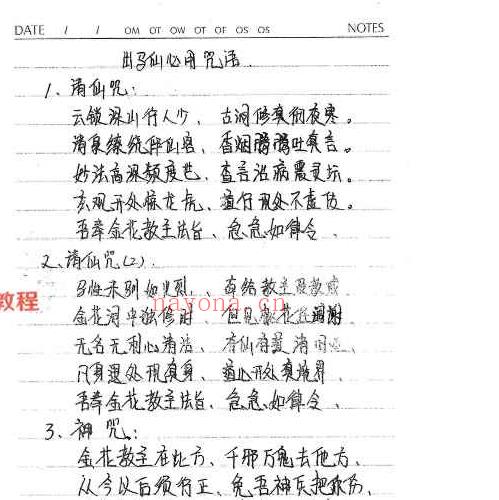 DATE / / OM OT OW OT OF OS OS NOTES
出马仙必用咒语
1、请仙咒:
云锁深山行人少、古洞修真彻夜寒。
清泉缭绕伴仙客、香烟腾腾吐真言。
妙法高深频度世、查言治病震灵坛。
玄观开处、道行现处不
吾奉金花教主法旨、急急如律令、
2、请仙咒(2):
教程
未别、教主
金花洞中、
nayona.cn
无名无利心清法、
凡身退处现真身、道心开处真境界、
吾奉金花教主法旨、急急如律令、
3、神咒:
金花教主在此方、千邪万鬼去他方、
从今以后须行正、免吾神兵把你伤、